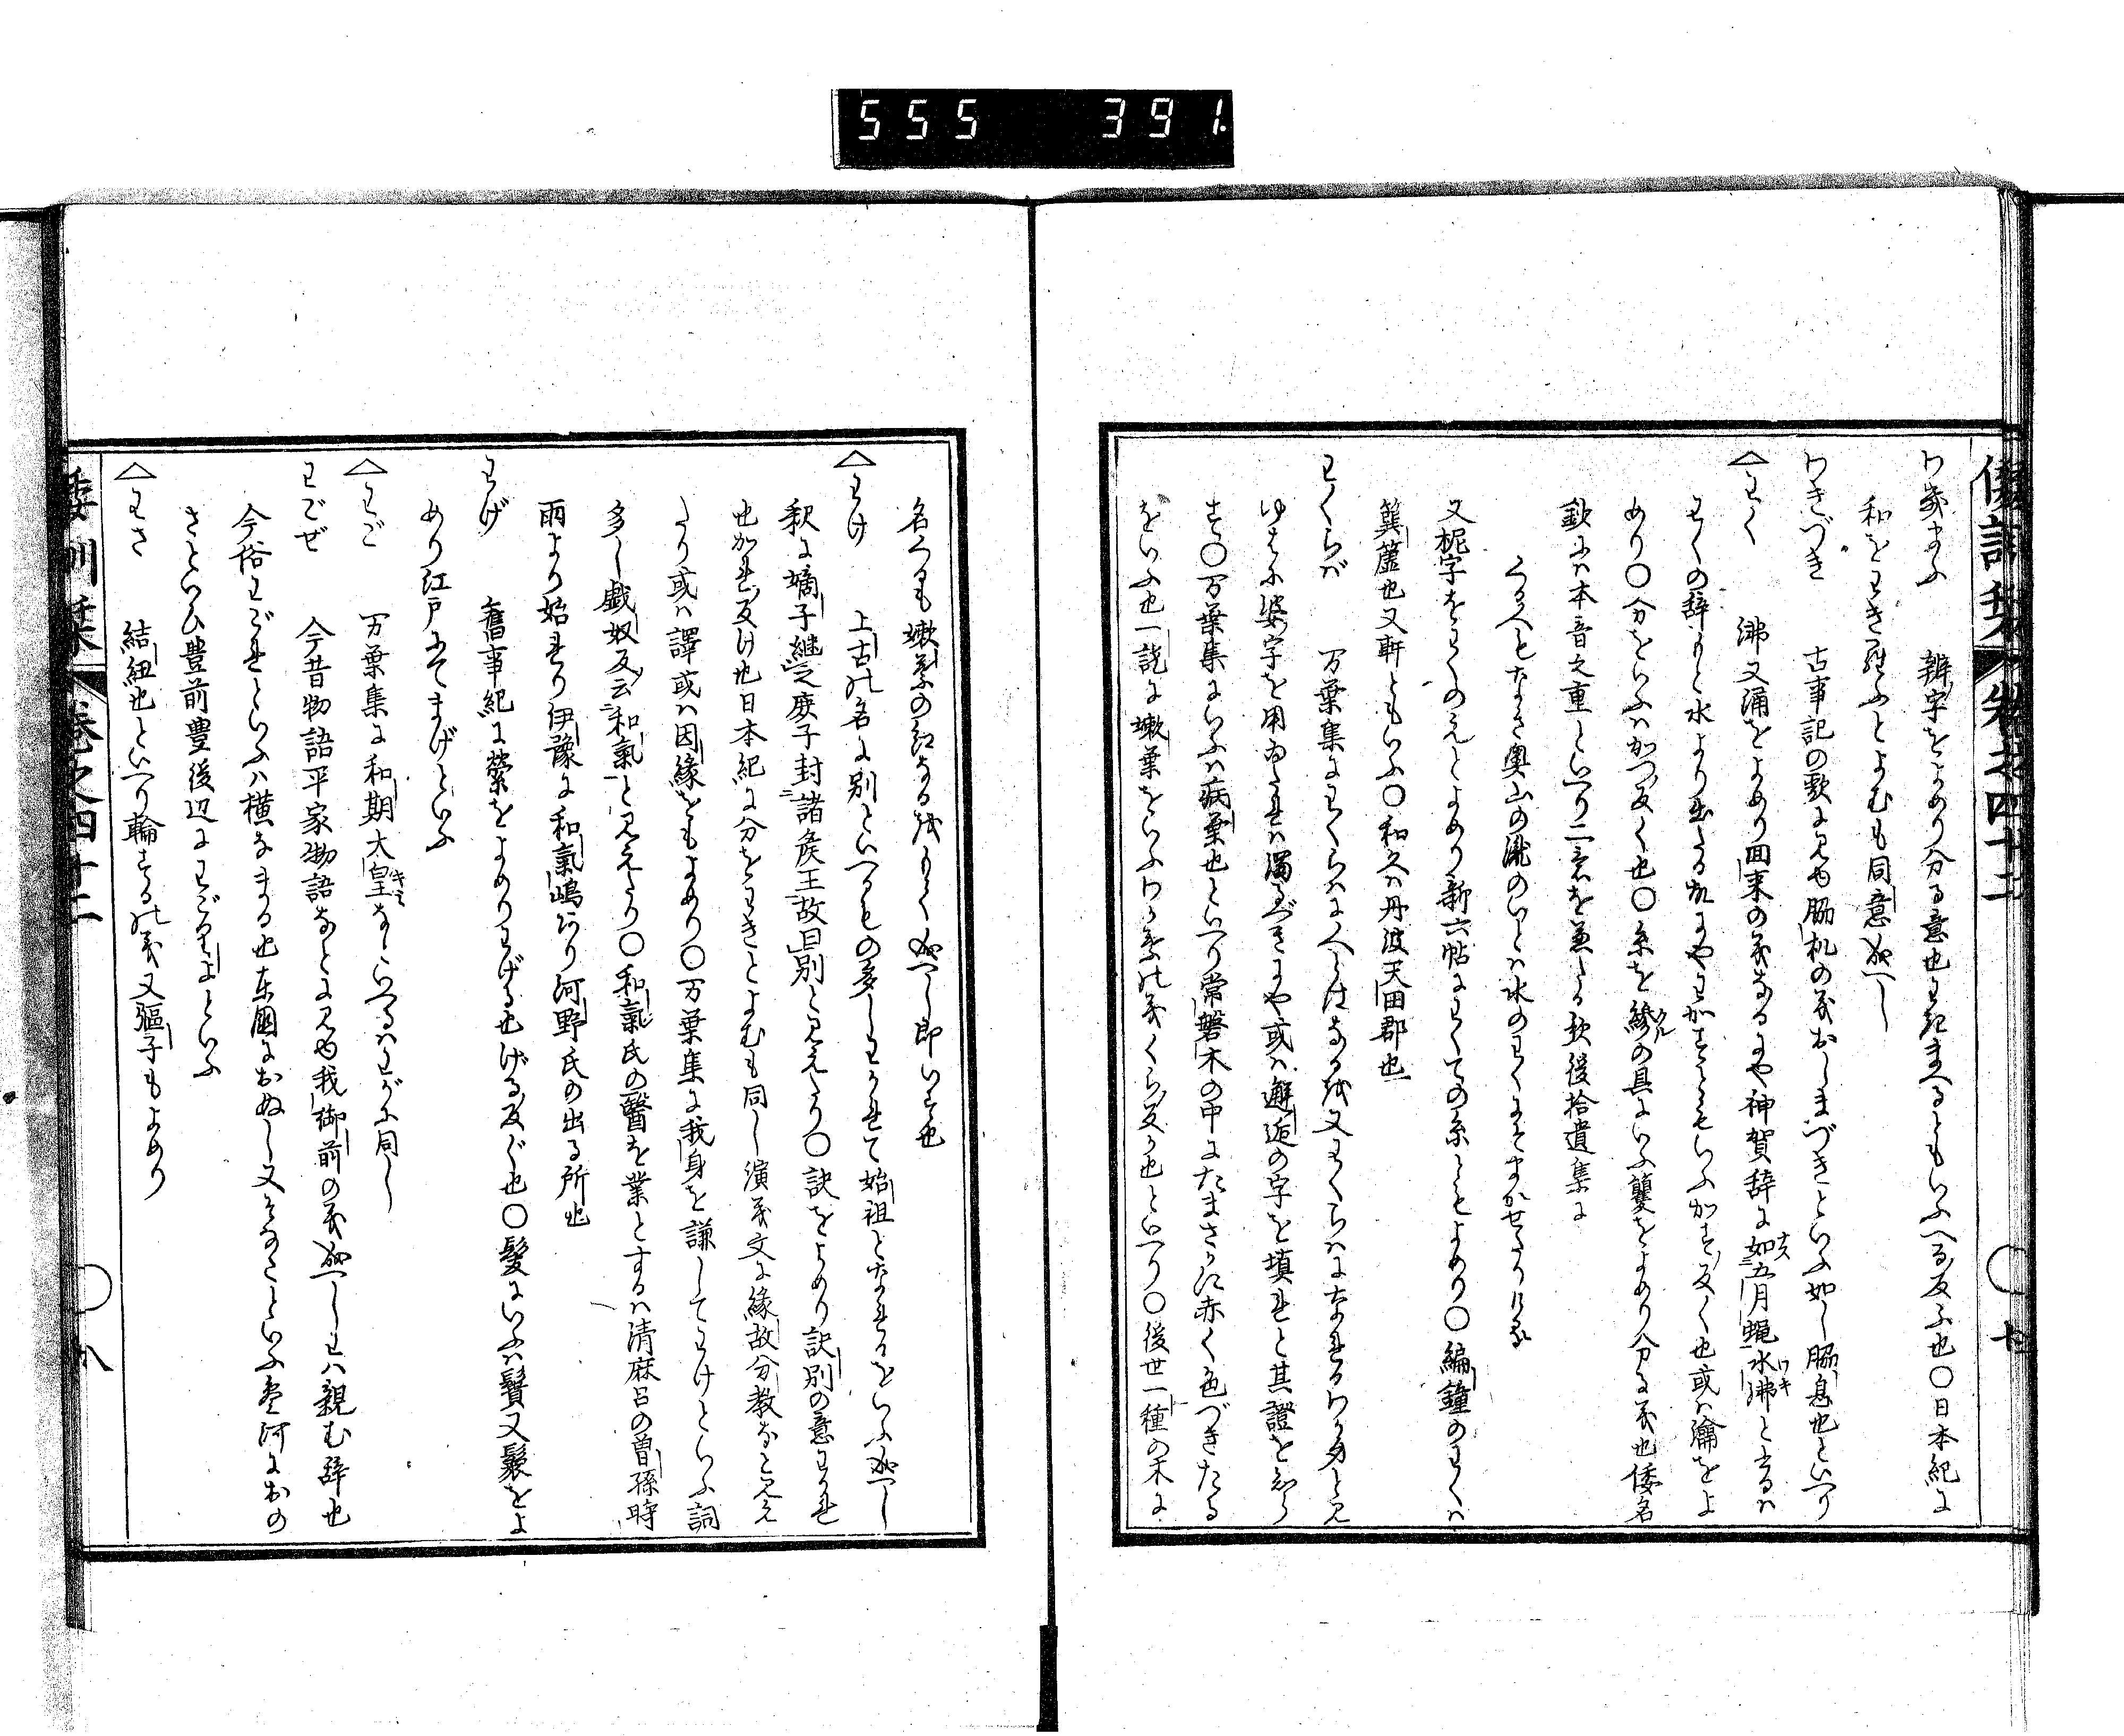 555 391.
倭訓栞 巻之四十二 ○ 七
わきまふ 辨字をよめり分る意也わきまへるともいふへる反ふ也○日本紀に
和をわきまふとよむも同意成へし
わきづき 古事記の歌に見ゆ脇机の義おしまづきといふ如し脇息也といへり
△わく 沸又涌をよめり回来の義なるにや神賀辞に如五月蝿水沸とあるは
わくの辞もと水より出たる故にやわかすともいふかす反く也或は瀹をよ
めり○分をいふはかつ反く也○糸を繰の具にいふ籰をよめり分る義也倭名
鈔には本音之重といへり二義を兼たる歟後拾遺集に
くる人もなき奥山の瀧のいとは水のわくにそまかせたりける
又柅字をわくのえとよめり新六帖にわくての糸ともよめり○編鐘のわくは
簨簴也又軒ともいふ○和久は丹波天田郡也
わくらば 万葉集にわくらはに人とはなるを又わくらはになれるわか身と見
ゆはに婆字を用ゐたれは濁るべきにや或は邂逅の字を填れと其證をしら
す○万葉集にいふは病葉也といへり常磐木の中にたまさかに赤く色づきたる
をいふ也一説に嫩葉をいふわか葉の義くら反か也といへり○後世一種の木に
名くるも嫩葉の紅なるをもて成へし即いす也
△わけ 上古の名に別といへるもの多しわかれて始祖となれるをいふ成へし
釈に嫡子継之庶子封諸侯王故曰別と見えたり○訣をよめり訣別の意わかれ
也かれ反け也日本紀に分をわきとよむも同し演義文に縁故分教なと見え
たり或は譯或は因縁をもよめり○万葉集に我身を謙してわけといふ詞
多し戯奴反云和氣と見えたり○和氣氏の醫を業とするは清麻呂の曽孫時
雨より始れり伊豫に和氣嶋あり河野氏の出る所也
わげ 舊事紀に縈をよめりわげる也げる反ぐ也○髪にいふは鬟又鬘をよ
めり江戸にてまげといふ
△わご 万葉集に和期大皇なといへるはわがに同し
わごぜ 今昔物語平家物語なとに見ゆ我御前の義成へしわは親む辞也
今俗わごれといふは横なまる也東國におぬし又そなこといふ駿河におの
さといひ豊前豊後辺にわごりよといふ
△わさ 結紐也といへり輪する義又䌔子もよめり
倭訓栞 巻之四十二 ○ 八